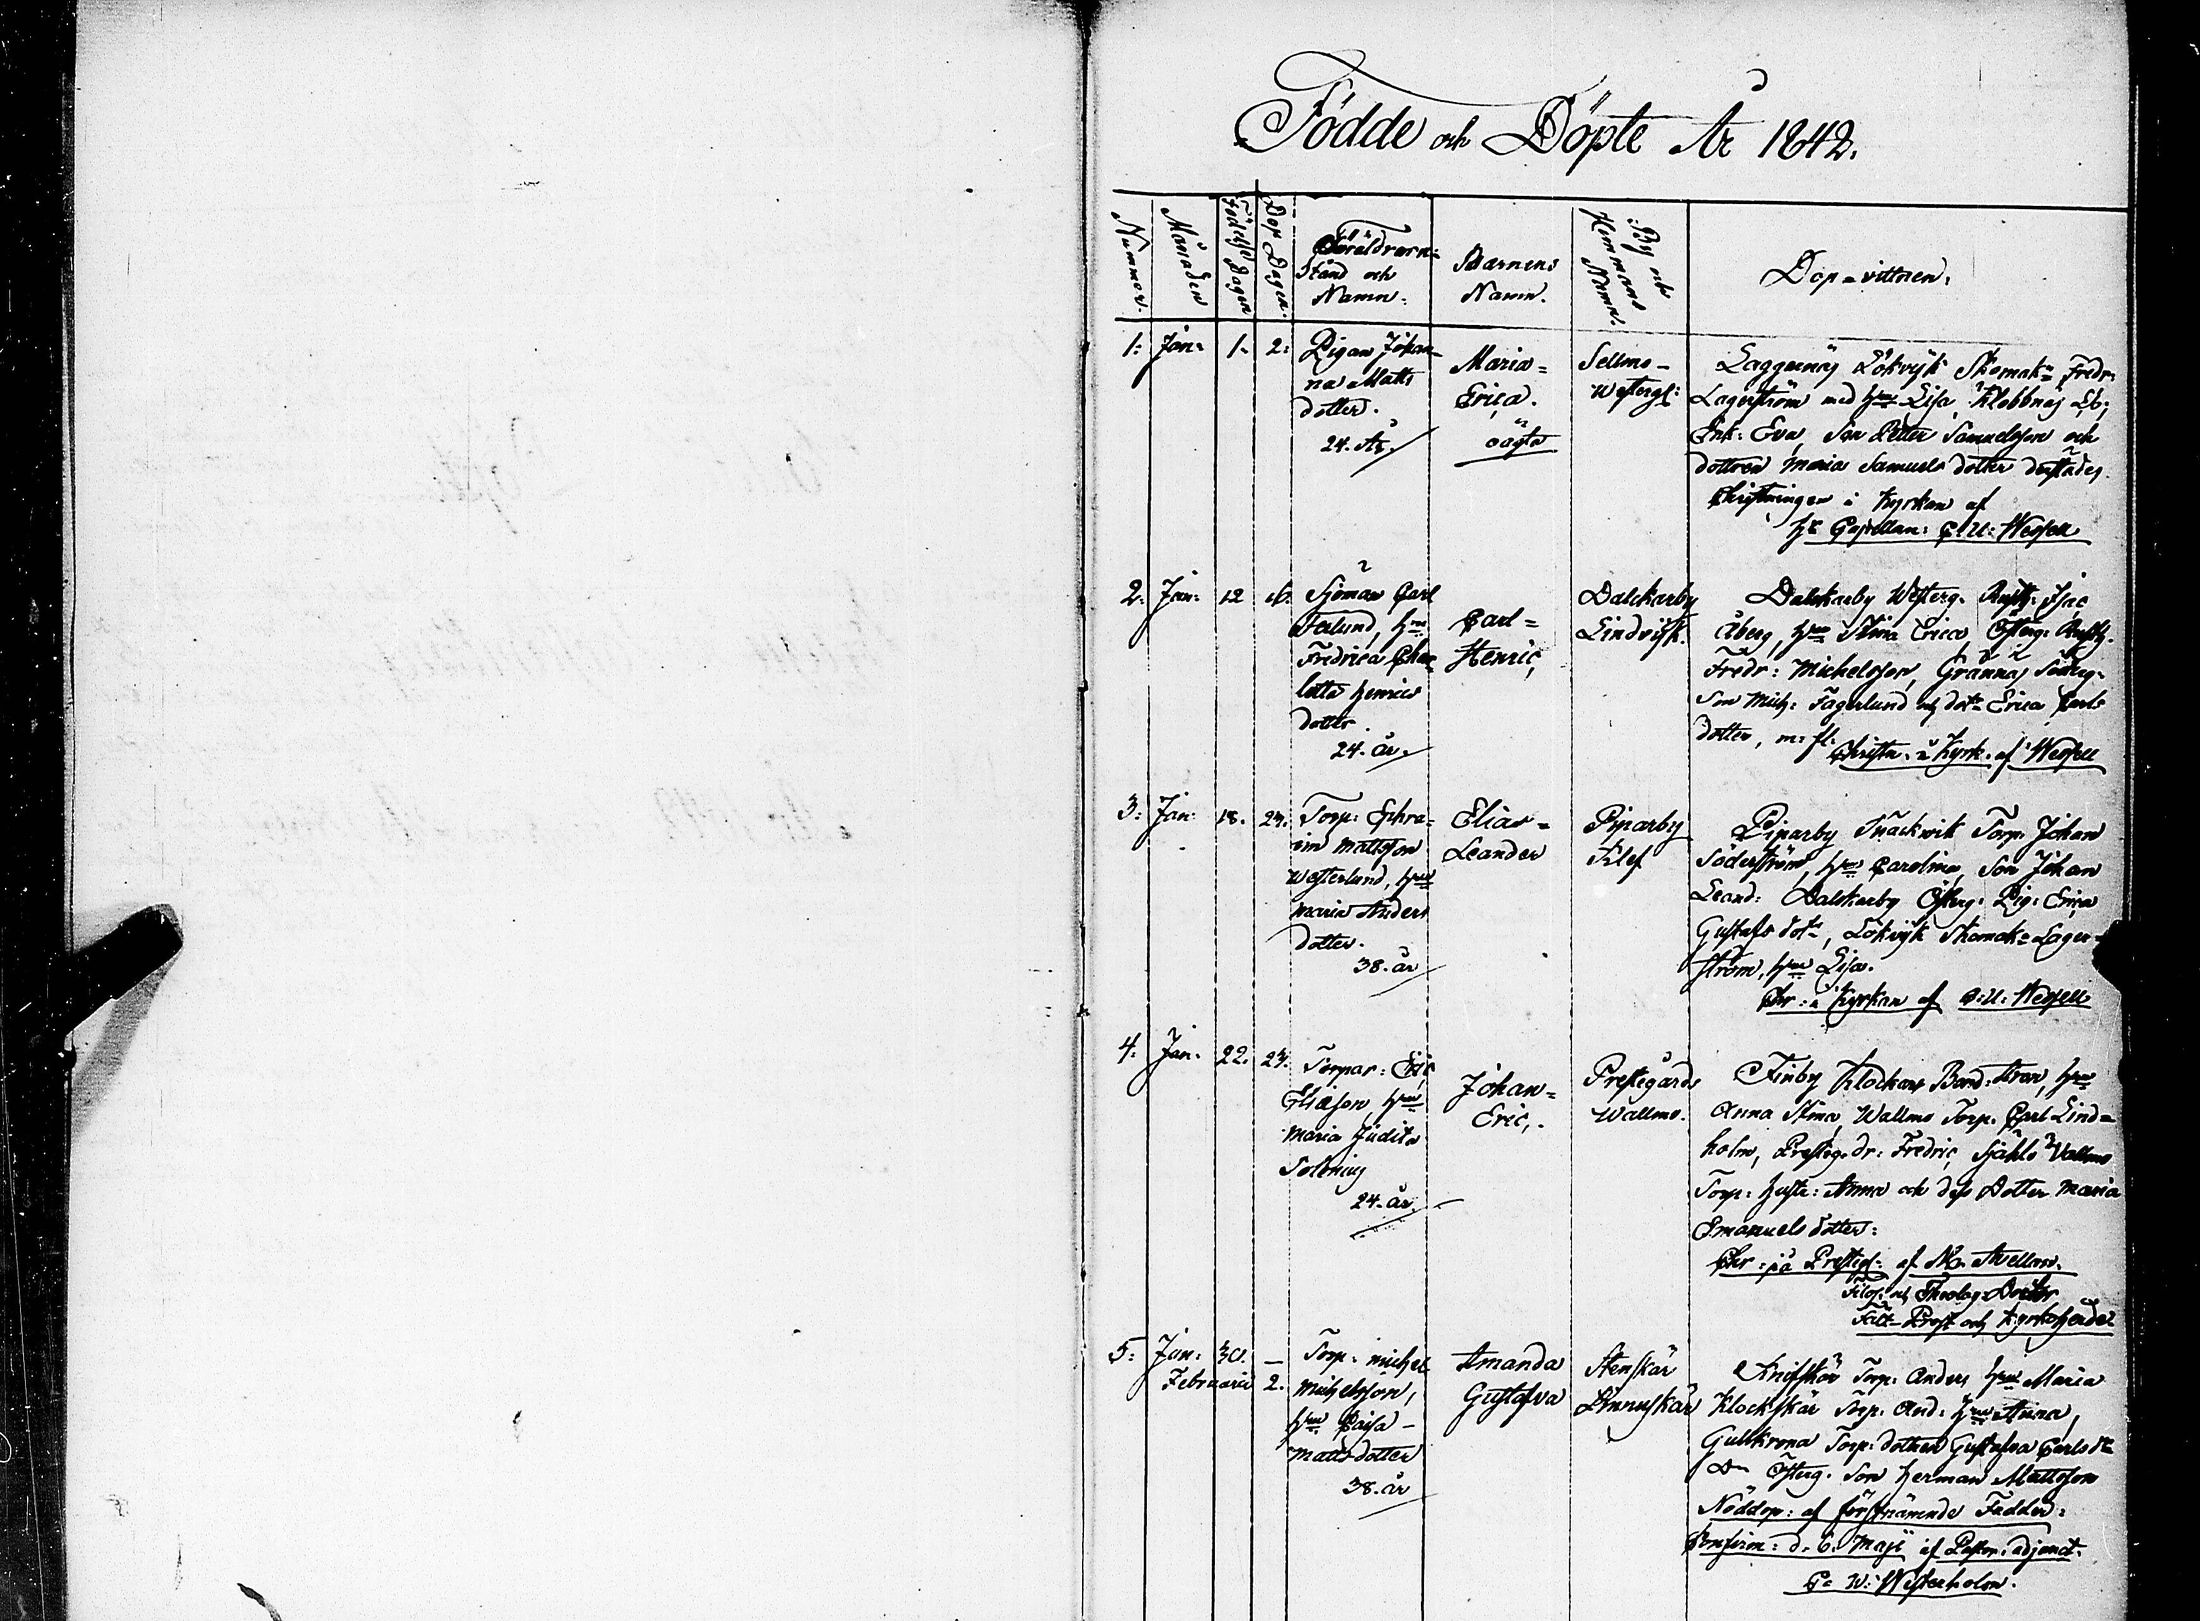 Födde och Döpte År 1842.
Nummer.
Månaden
Födelse Dagen
Dop Dagen.
Föräldrarn-
Stånd och
Namn.
Barnens
Namn.
By och
Hemmans
Namn.
Dop-vittnen.
1: Jan: 1. 2:
Pigan Johan-
na Matts
dotter.
24. År.
Maria=
Erica.
oägta
Sellmo-
Westerg:
Laggarnäs Lökvijk Skomak: Fredr:
Lagerström med hru Lisa, Klobbnäs
Enk: Eva, Son Petter Samuelsson och
dottren Maria Samuels dotter derstädes.
Christningen i Kyrkan af
Hr Capellan: C: U: Wessell
2. Jan: 12 16.
Sjöman Carl
Ferlund, hru
Fredrica Char
lotta Henrics
dotter.
24. år.
Carl=
Henric,
Dalckarby
Lindvijk.
Dalckarby Westerg. Rusth: Isac
Åberg, hru Stina Erica, Österg: Rusth.
Fredr: Michelsson, Grännäs Söderg.
Son Mich: Fagerlund och dotr Erica Carls
dotter, m: fl:
Christn. i Kyrk. af Wessell
3: Jan: 18. 23.
Torp: Ephra-
im Mattsson
Westerlund, hru
Maria Anders
dotter.
38. år
Elias=
Leander
Piparby
Klef
Piparby Snäckvik Torp. Johan
Söderström, hru Carolina, Son Johan
Leand: Dalckarby Österg: Pig: Erica
Gustafs dotr, Lökvijk Skomak= Lager-
ström, hru Lisa.
Chr: i Kyrkan af C: U: Wessell
4. Jan. 22. 23.
Torpar: Eric
Eliasson, hru
Maria Judita
24. år.
Johan=
Eric,.
Prestegårds
Wallmo.
Finby Klockars Bond: Aron, hru
Anna Stina, Wallmo Torp. Carl Lind=
holm, Presteg. dr: Fredric, Sjählö Vallmo
Torp: hustr: Anna och dess Dotter Maria
Emanuels dotter:
Chr: på Prestg: af Avellan.
Filos: och Theolog: Doctor
Fält-Prost och Kyrkoherde
5: Jan: 30. —
Februarii 2.
Torp: Michel
Michelsson,
hru Caisa-
Matts dotter
38. år
Amanda
Gustafva
Stenskär
Knifskär Torp: Anders hru Maria
Klockskär Torp. And: hru Anna,
Gullkrona Torp: dotter Gustafva Carls dr
Österg. Son Herman Mattsson
Nöddöp: af förstnämnde Fadder:
Confirm: d. 6. Maji af Pastor: adjunct.
G: W: Westerholm.